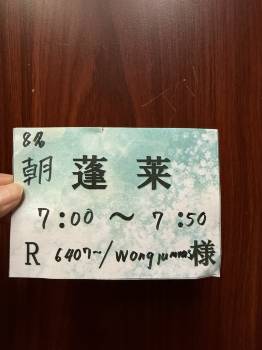 8名
朝 蓬莱
7:00 ～ 7:50
R 6407~/Wong 様